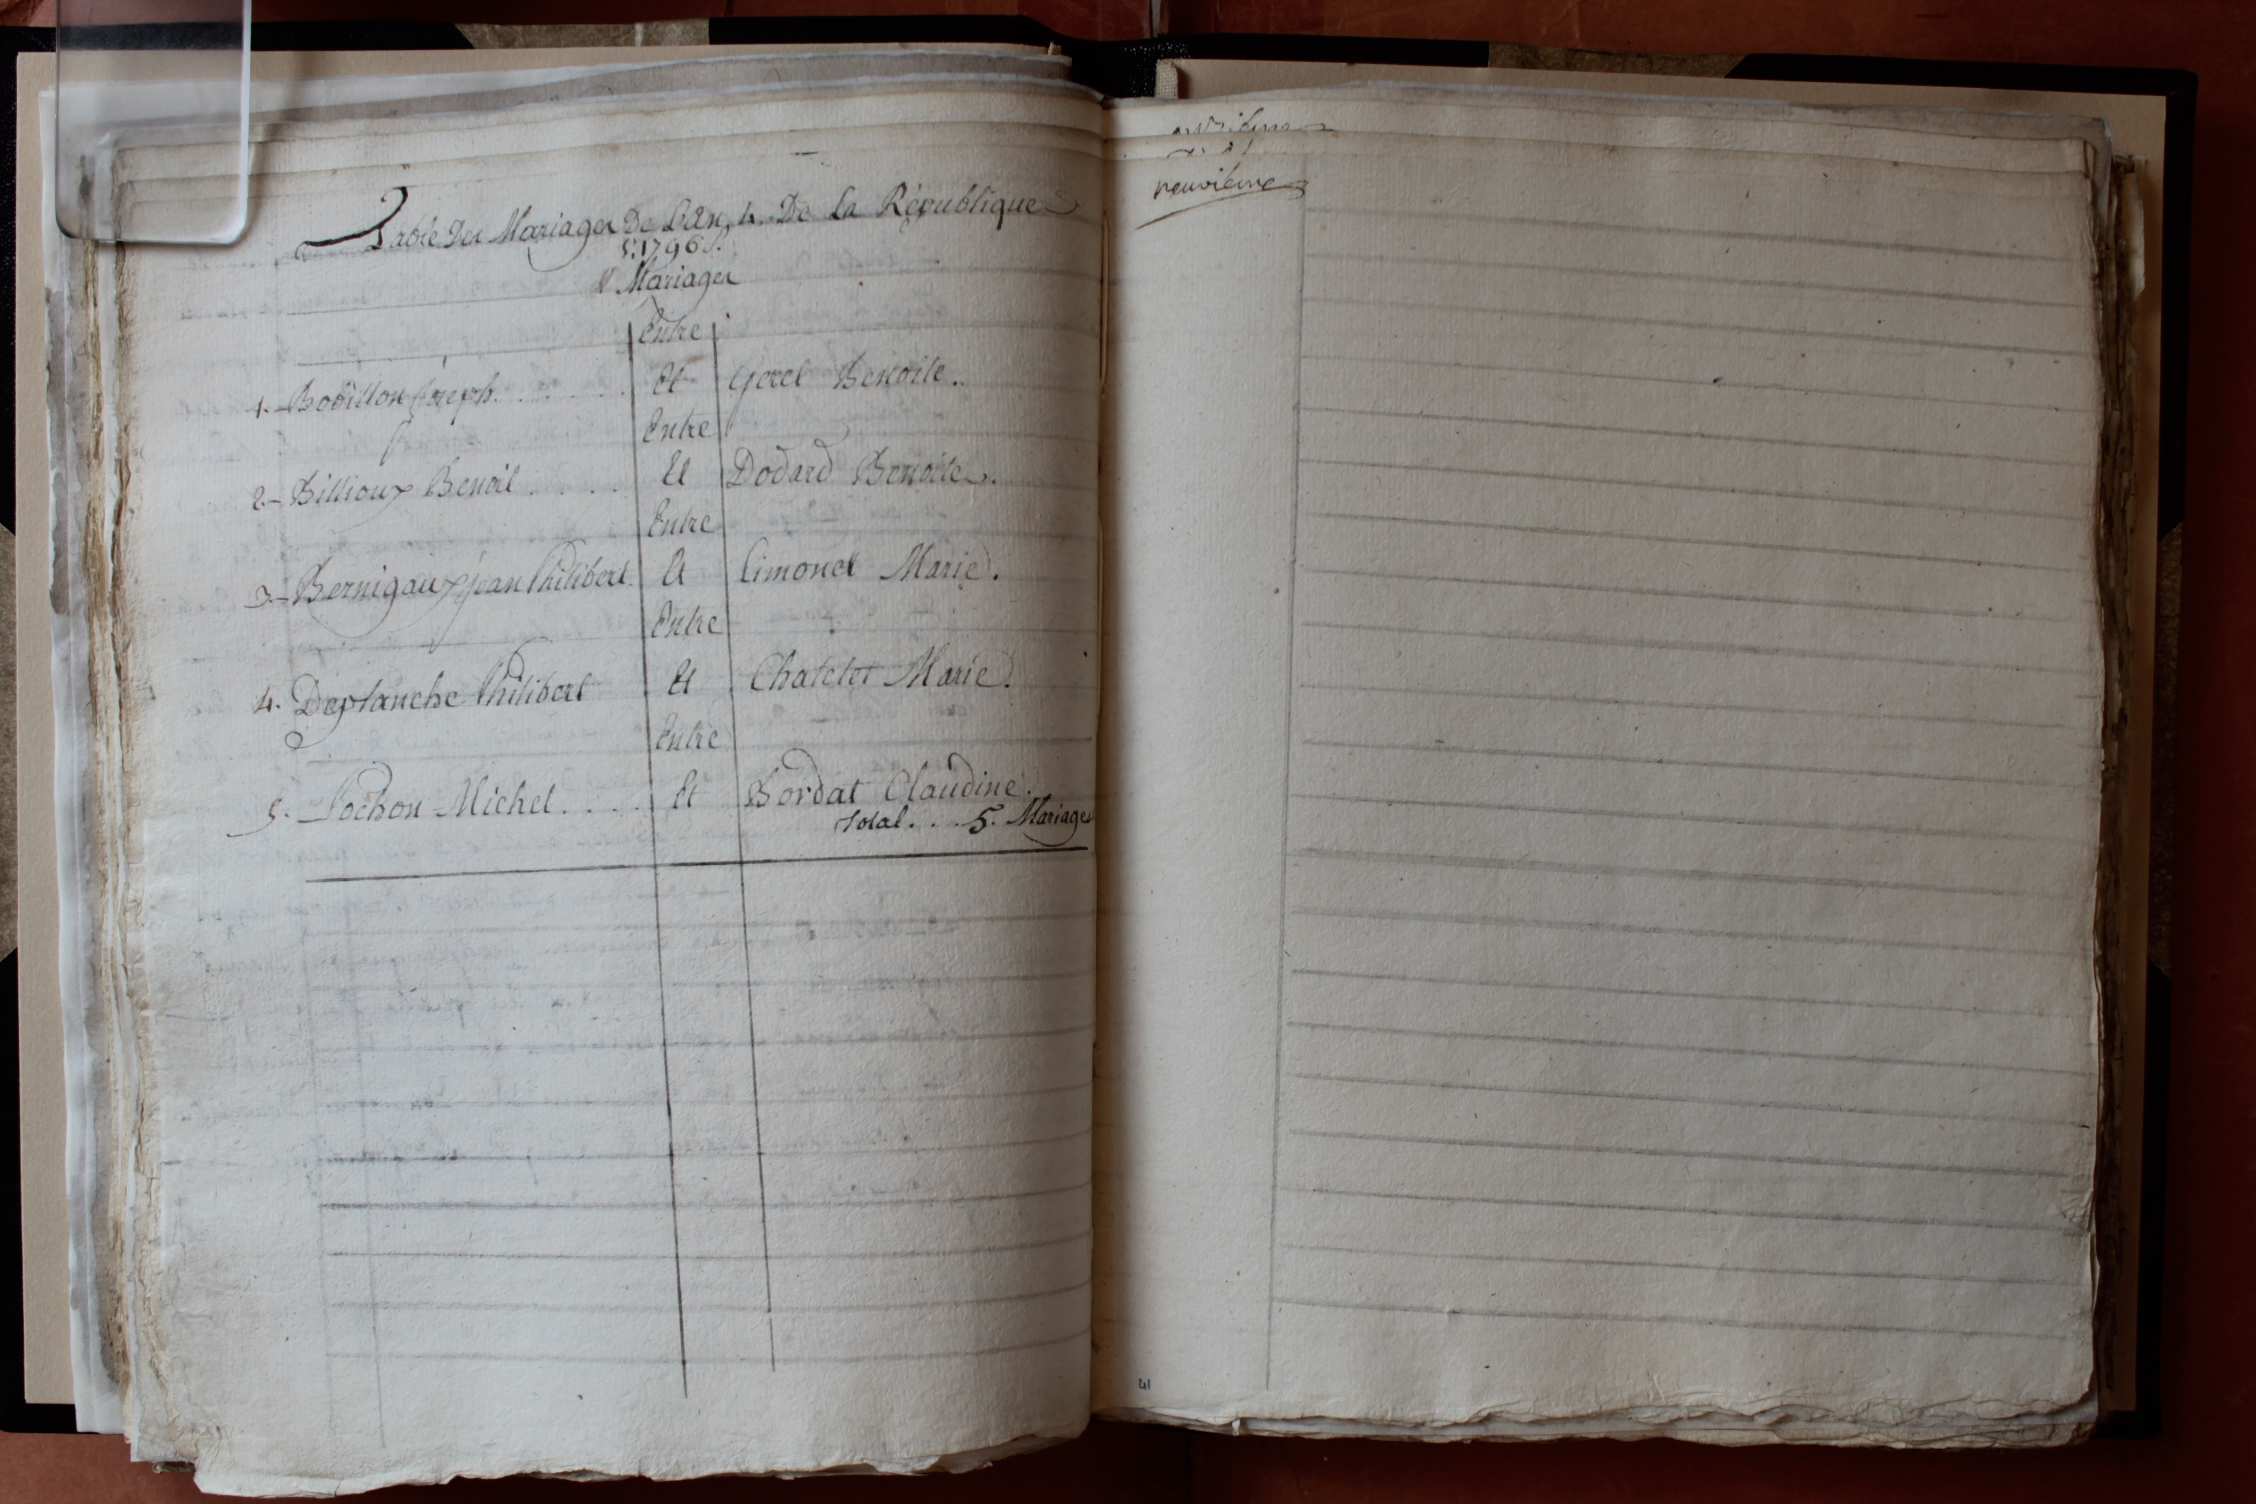 Table Des Mariages De L'an 4. De la République
1796
Mariages
Entre
1. Bobillon Joseph . . . . . . Et Gorel Benoite ..
Entre
2. Billioux Benoit . . . . Et Dodard Benoite.
Entre
3. Bernigaux jean Philibert. Et Limonet Marie.
Entre
4. Deplanche Philibert Et Chatelet Marie.
Entre
5. Pochon Michel . . . . Et Bordat Claudine.
Total . . . 5. Mariages
neuvieme
41